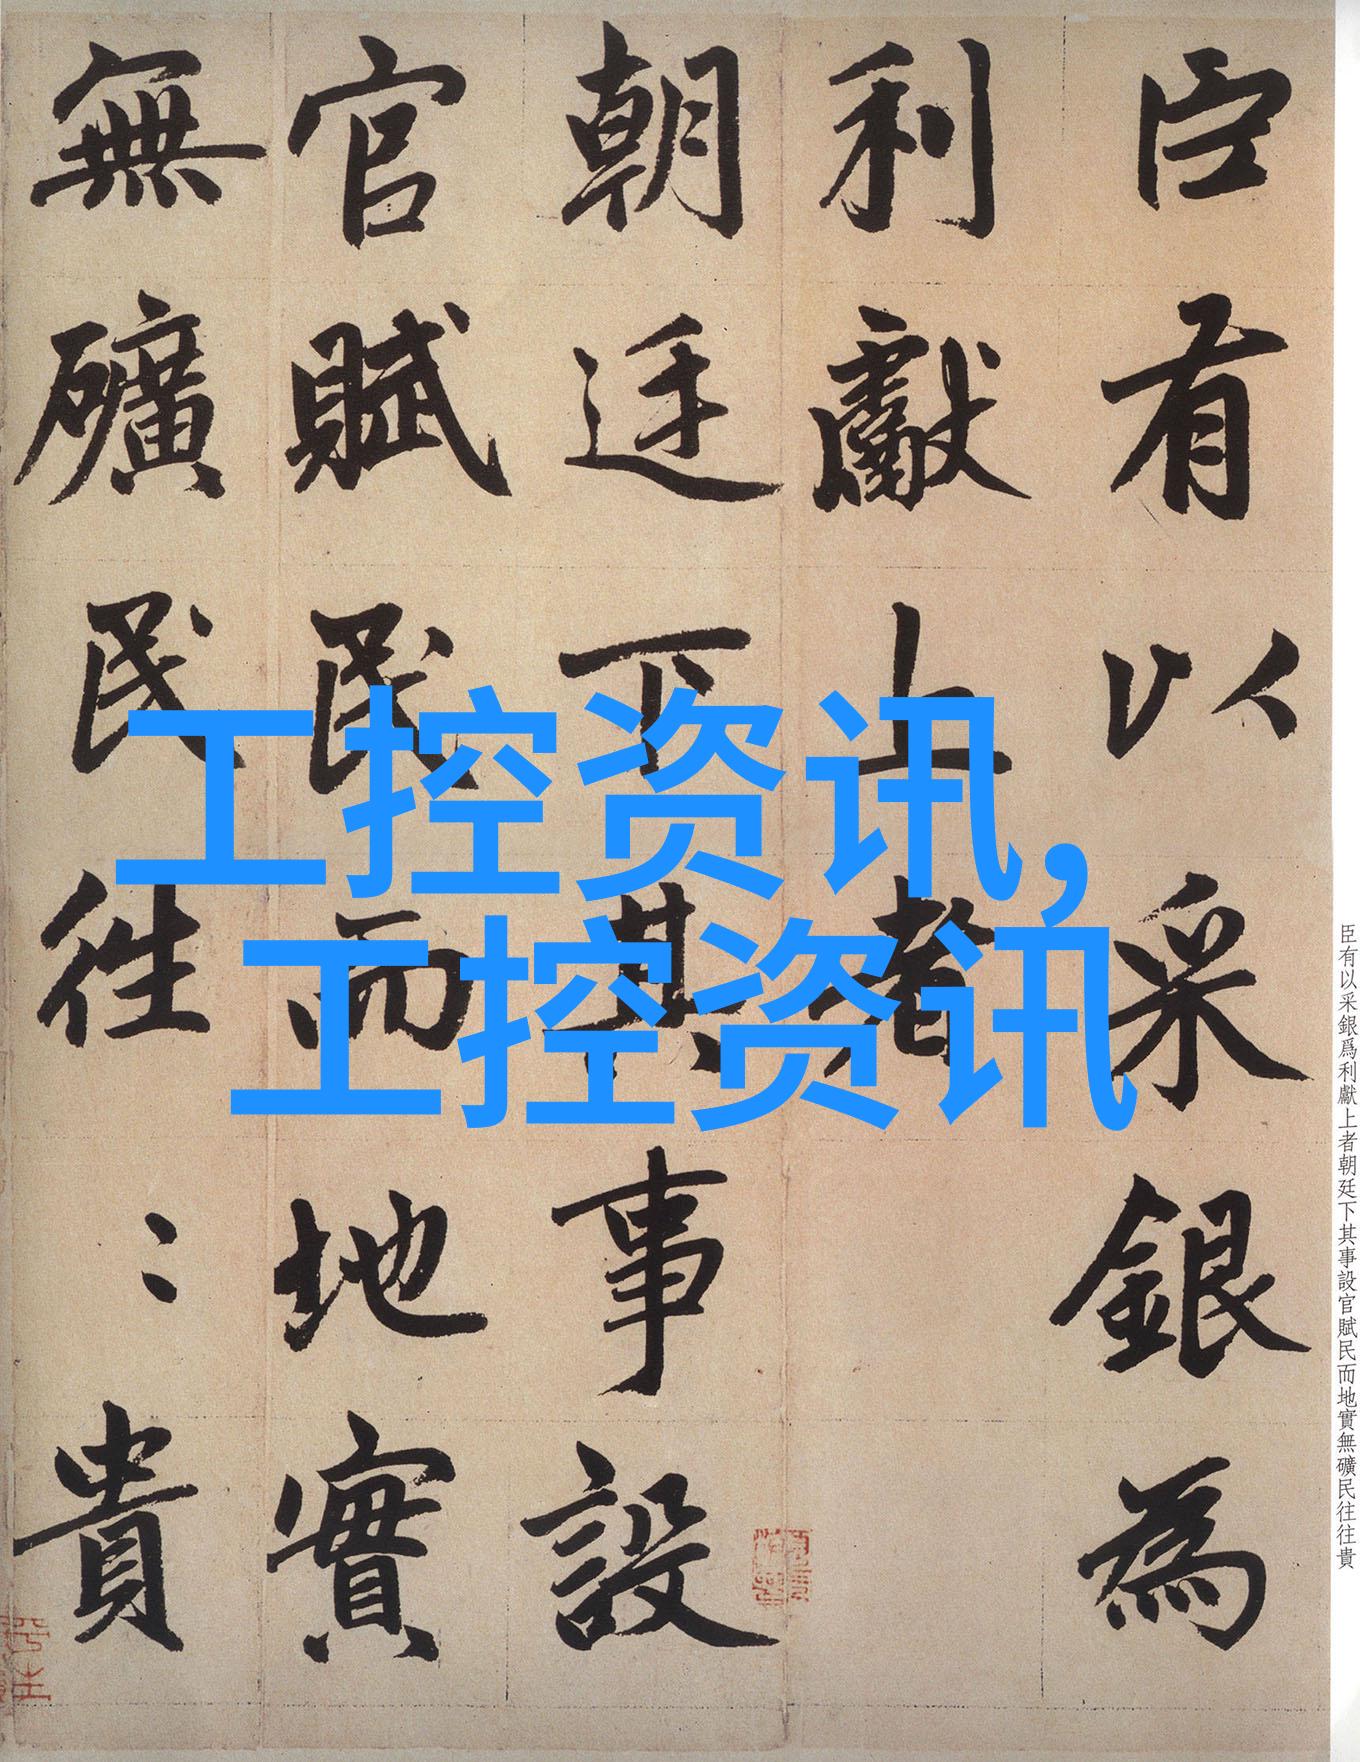 臣有以采銀為
利獻上者
朝廷下其事設
官賦民而地實
無礦民往〻貴
工控资讯，
工控资讯
臣有以采銀爲利獻上者朝廷下其事設官賦民而地實無礦民往往貴